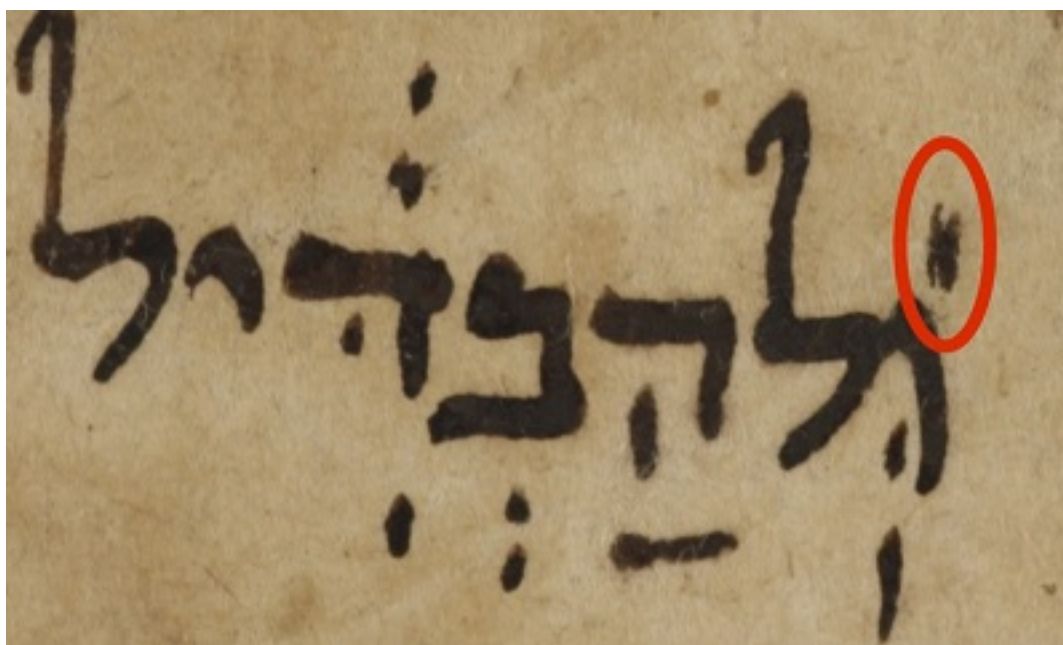 וּֽלהַבְדִּ֔יל